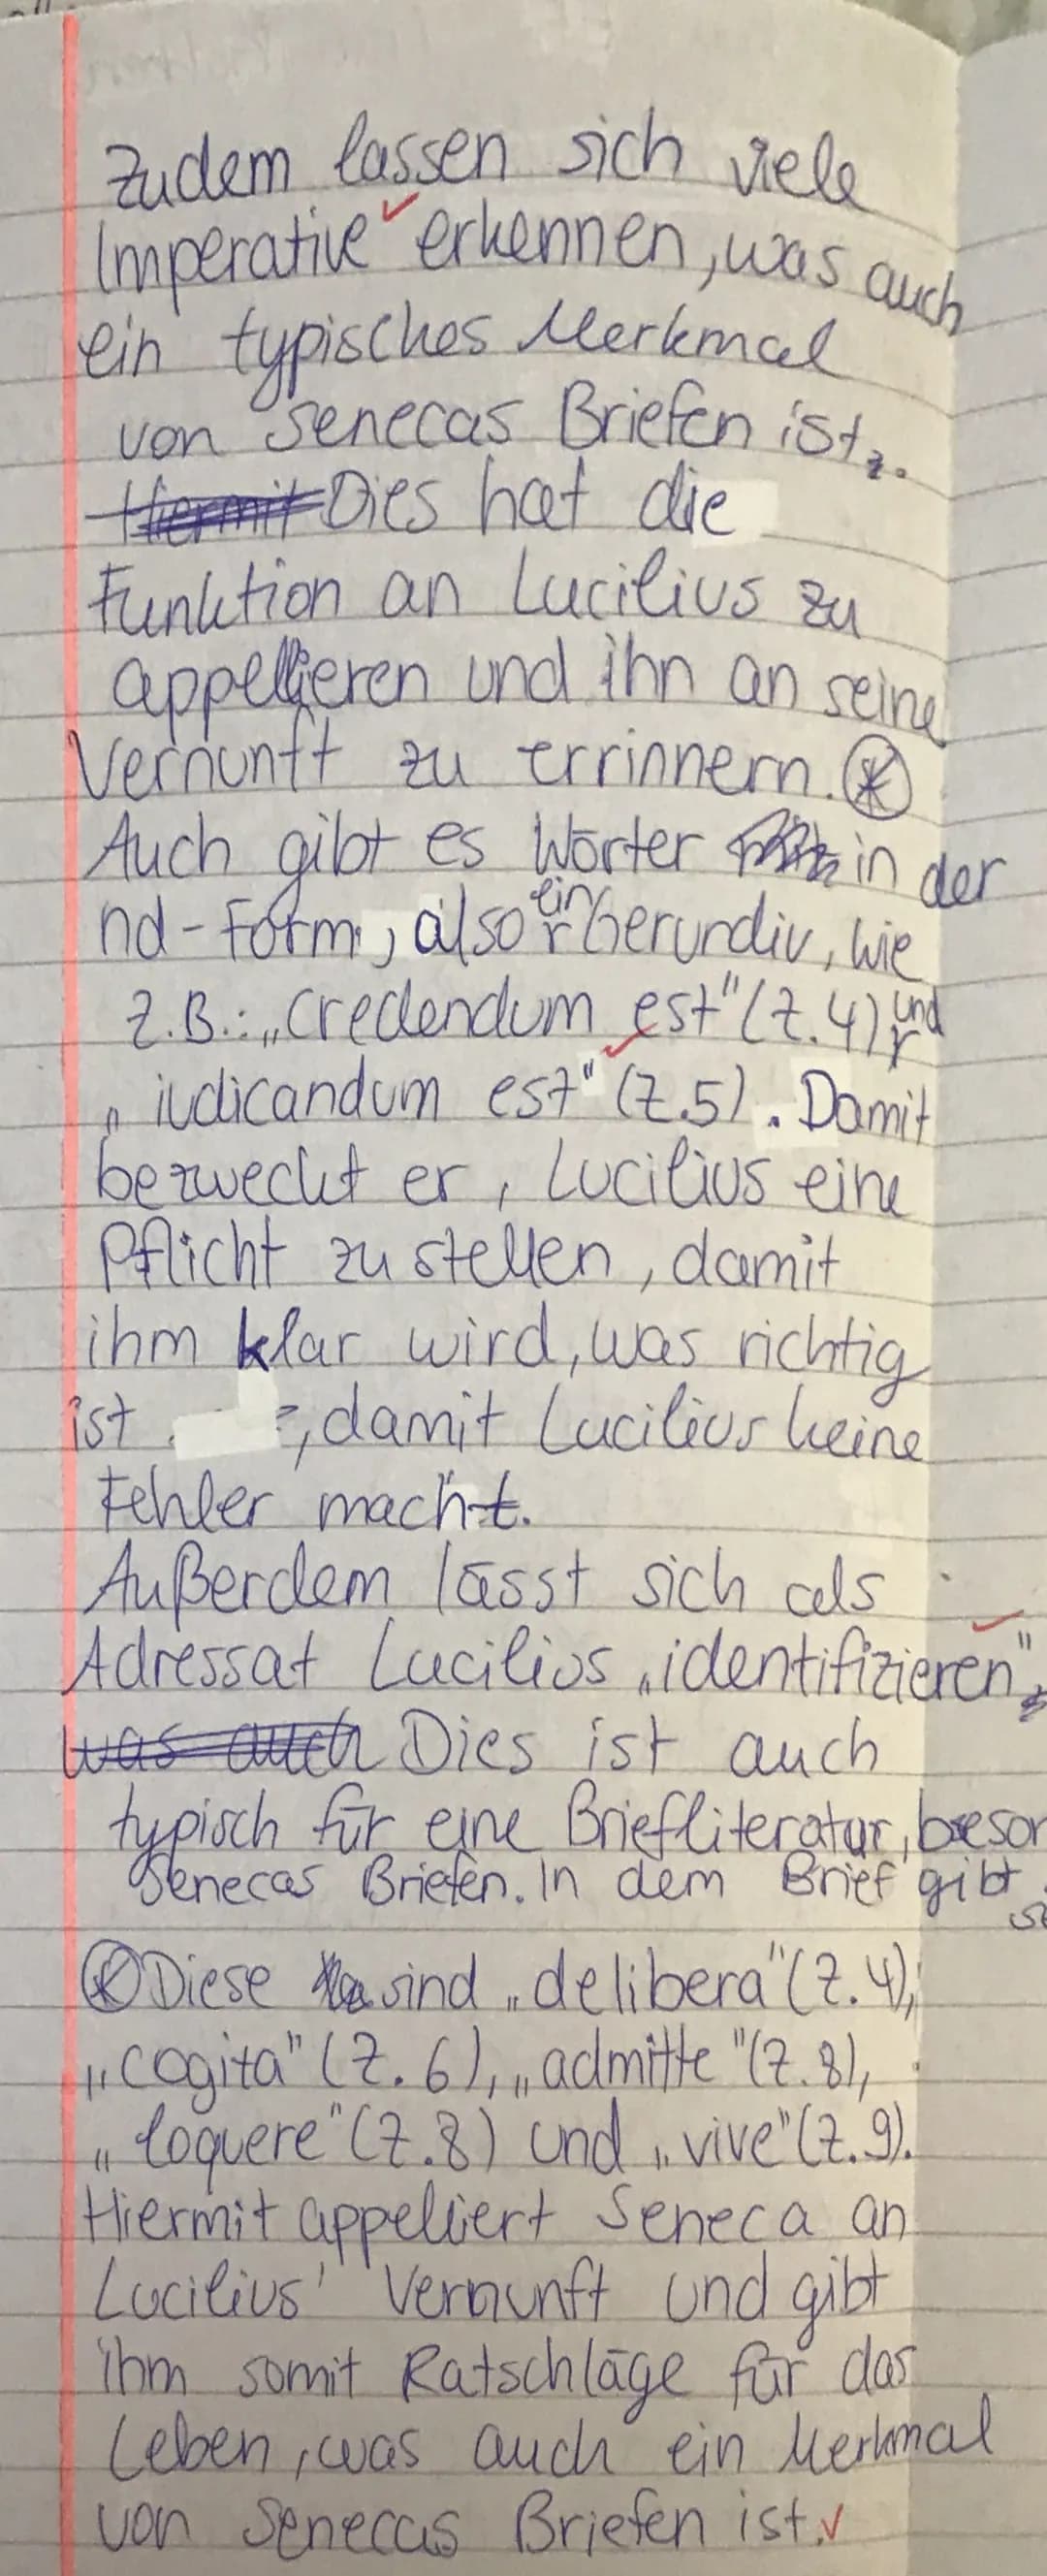 Zudem lassen sich viele
Imperative erkennen, was auch
ein typisches Merkmal
von Senecas Briefen ist.
Hiermit Dies hat die
Funktion an Lucilius zu
appellieren und ihn an seine
Vernunft zu errinnern. *
Auch gibt es Wörter in der
nd-Form, also ein Gerundiv, wie
z.B.: „credendum est" (Z.4) und
„iudicandum est" (Z.5). Damit
bezweckt er, Lucilius eine
Pflicht zu stellen, damit
ihm klar wird, was richtig
ist, damit Lucilius keine
Fehler macht.
Außerdem lässt sich als
Adressat Lucilius „identifizieren"
was auch Dies ist auch
typisch für eine Briefliteratur,
Senecas Briefen. In dem Brief gibt
* Diese sind „delibera" (Z.4),
„cogita" (Z.6), „admitte" (Z.8),
„loquere" (Z.8) und „vive" (Z.9).
Hiermit appelliert Seneca an
Lucilius' Vernunft und gibt
ihm somit Ratschläge für das
Leben, was auch ein Merkmal
von Senecas Briefen ist.